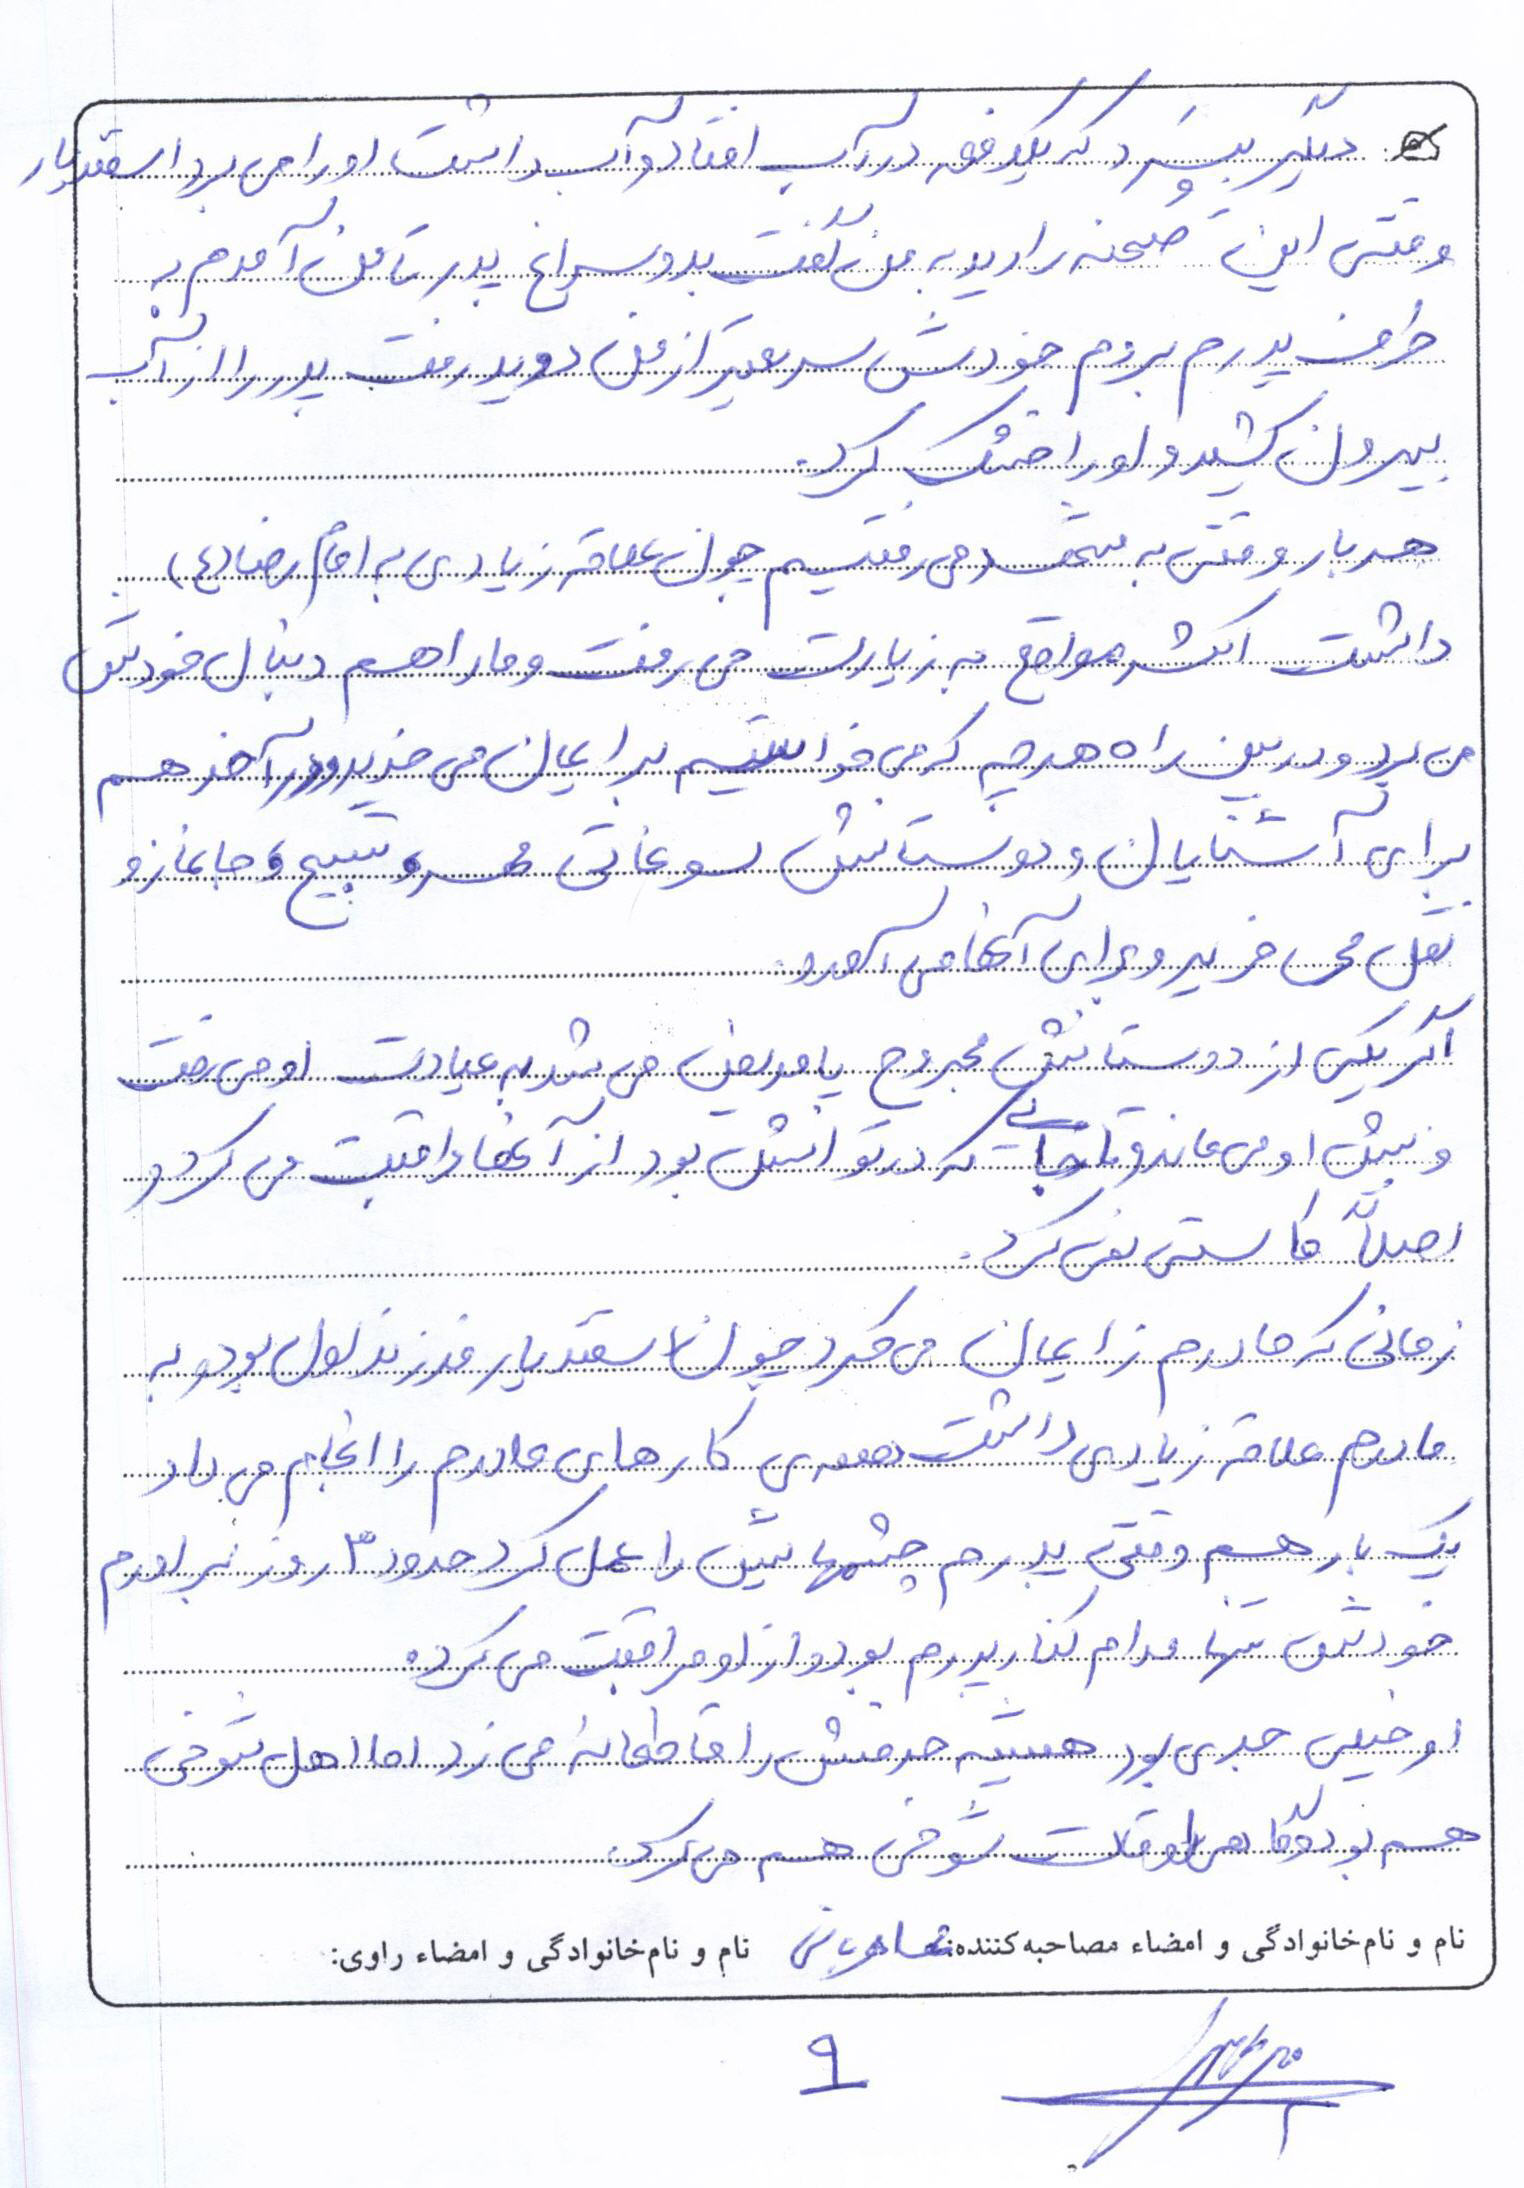 دیگر ببرد که یکدفعه در آب افتاد و آب داشت او را می برد اسفندیار
وقتی این صحنه را دید به من گفت بدو سراغ پدر تا من آمدم به
طرف پدرم بروم خودش سریعتر از من دوید رفت پدر را از آب
بیرون کشید و او را خشک کرد.
هر بار وقتی به مشهد می رفتیم چون علاقه زیادی به امام رضا (ع)
داشت اکثر مواقع به زیارت می رفت و ما را هم دنبال خودش
می برد و در بین راه هر چه که می خواستیم برایمان می خرید و در آخر هم
برای آشنایان و دوستانش سوغاتی مهر و تسبیح و جانماز و
نقل می خرید و برای آنها می آورد.
اگر یکی از دوستانش مجروح یا مریض می شد به عیادت او می رفت
و پیش او می ماند و تا جایی که در توانش بود از آنها مراقبت می کرد و
اصلاً کاستی نمی کرد.
زمانی که مادرم زایمان می کرد چون اسفندیار فرزند اول بود و به
مادرم علاقه زیادی داشت همه ی کارهای مادرم را انجام می داد
یک بار هم وقتی پدرم چشمهایش را عمل کرد حدود ۳ روز برادرم
خودش تنها مدام کنار پدرم بود و از او مراقبت می کرد.
او خیلی جدی بود همیشه حرفش را قاطعانه می زد اما اهل شوخی
هم بود و گاهی اوقات شوخی هم می کرد.
نام و نام خانوادگی و امضاء مصاحبه کننده: نام و نام خانوادگی و امضاء راوی:
۹